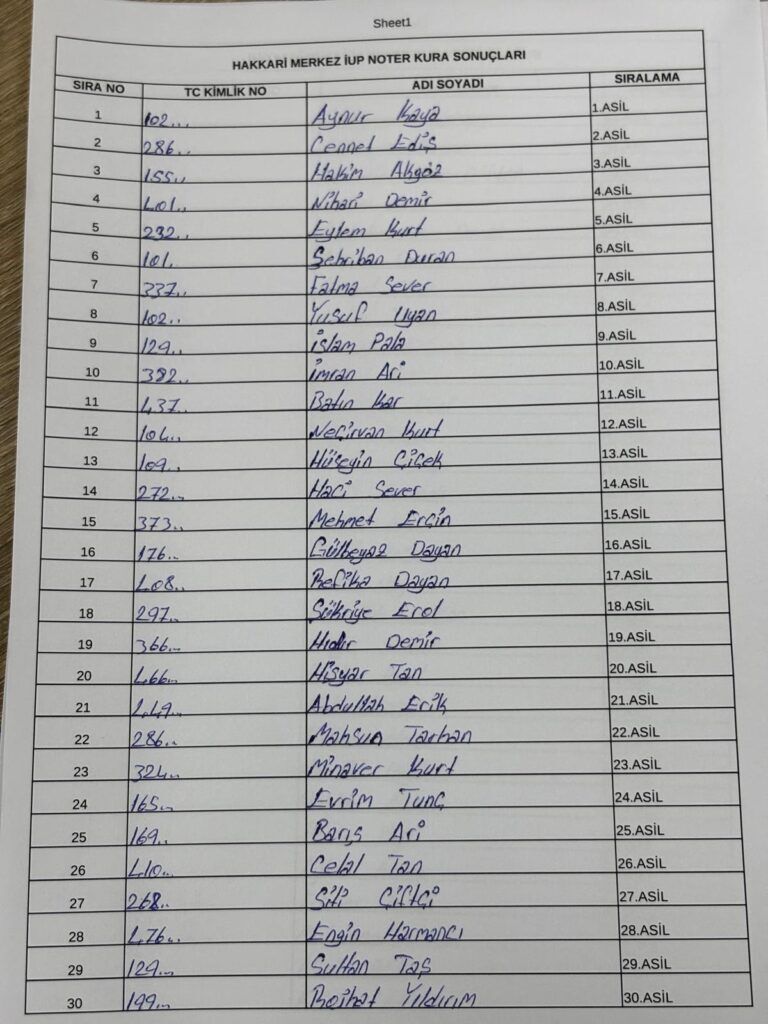 Sheet1
HAKKARİ MERKEZ İUP NOTER KURA SONUÇLARI
SIRA NO TC KİMLİK NO ADI SOYADI SIRALAMA
1 102... Aynur Kaya 1.ASİL
2 286.. Cennet Ediş 2.ASİL
3 155.. Hakim Akgöz 3.ASİL
4 401.. Nihari Demir 4.ASİL
5 232.. Eylem Kurt 5.ASİL
6 101. Şehriban Duran 6.ASİL
7 337.. Fatma Sever 7.ASİL
8 102.. Yusuf Uyan 8.ASİL
9 129.. İslam Pala 9.ASİL
10 382.. İmran Ari 10.ASİL
11 437.. Batın Kar 11.ASİL
12 104.. Neçirvan Kurt 12.ASİL
13 109.. Hüseyin Çiçek 13.ASİL
14 272... Haci Sever 14.ASİL
15 373... Mehmet Erçin 15.ASİL
16 176... Gülbeyaz Dayan 16.ASİL
17 408... Refika Dayan 17.ASİL
18 297... Şükriye Erol 18.ASİL
19 366... Hıdır Demir 19.ASİL
20 466... Hişyar Tan 20.ASİL
21 449... Abdullah Erik 21.ASİL
22 286... Mahsun Tarhan 22.ASİL
23 324... Minaver Kurt 23.ASİL
24 165... Evrim Tunç 24.ASİL
25 169.. Barış Ari 25.ASİL
26 410... Celal Tan 26.ASİL
27 268.. Siti Çiftçi 27.ASİL
28 476... Engin Harmancı 28.ASİL
29 129... Sultan Taş 29.ASİL
30 199... Yıldırım 30.ASİL